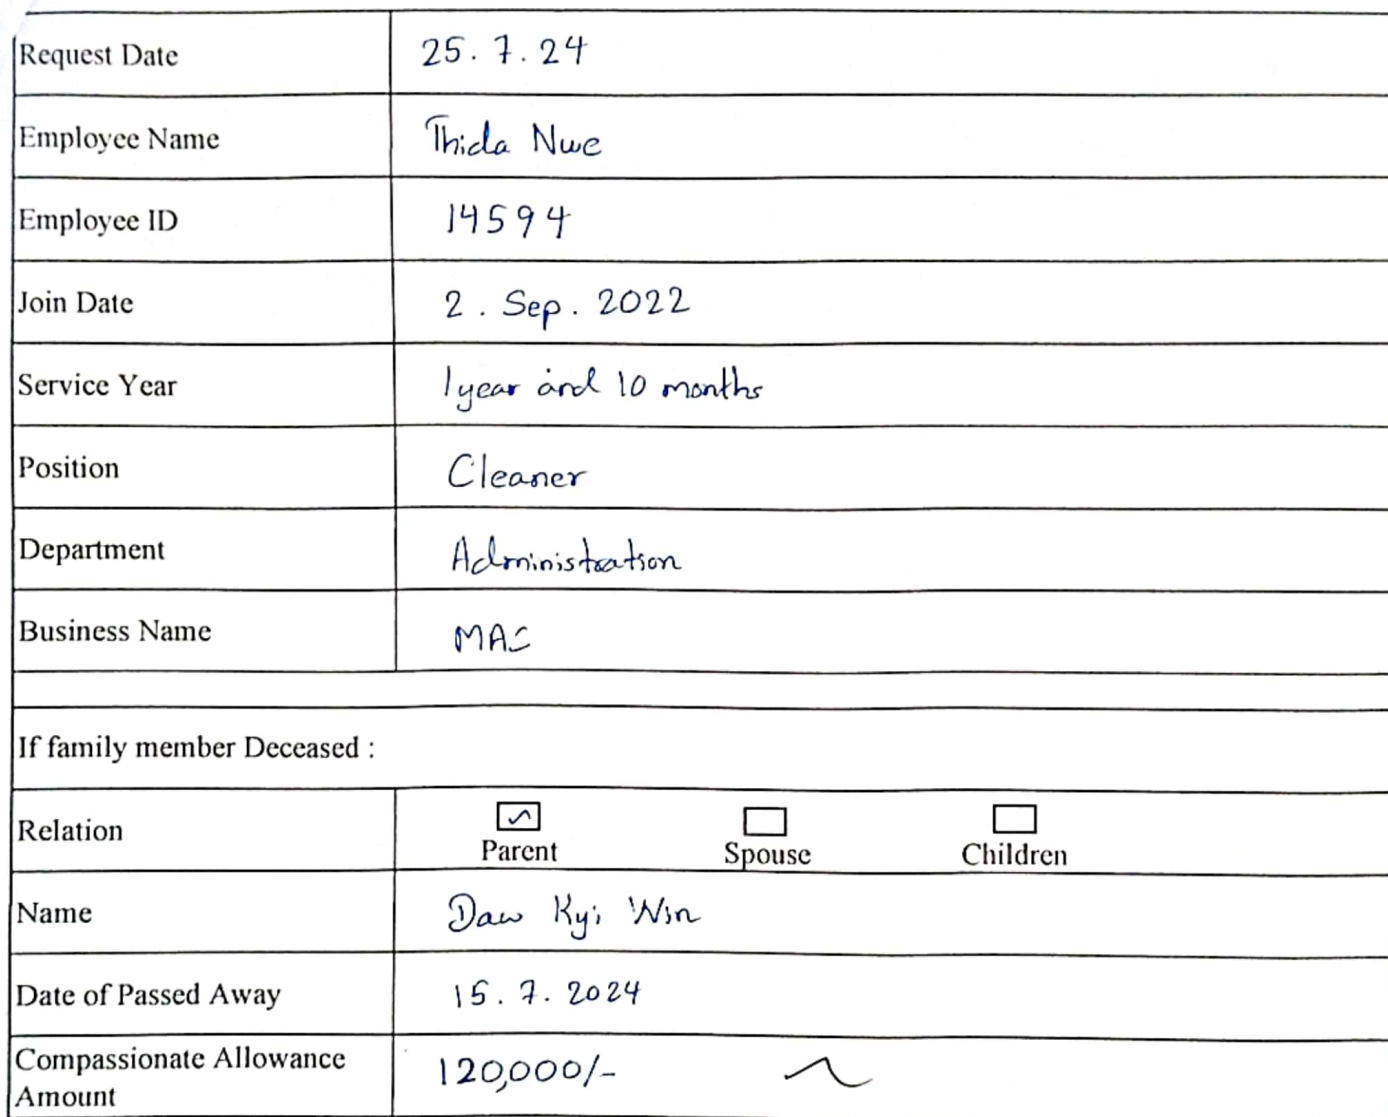 Request Date 25.7.24
Employee Name Thida Nwe
Employee ID 14594
Join Date 2. Sep. 2022
Service Year 1 year and 10 months
Position Cleaner
Department Administration
Business Name MAC
If family member Deceased :
Relation
Parent Spouse Children
Name Daw Kyi Win
Date of Passed Away 15.7.2024
Compassionate Allowance
Amount 120,000/-